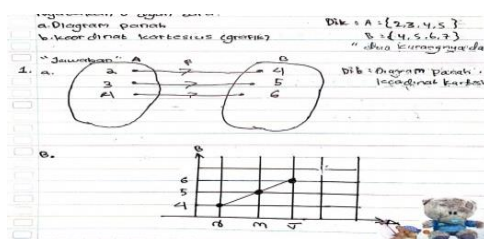 a. Diagram panah
b. koordinat kartesius (grafik)
Dik : A = {2,3,4,5}
B = {4,5,6,7}
" dua kurangnya da
1. "Jawaban"
a. A B
2 4
3 5
4 6
Dit : Diagram panah,
koordinat kartes
B.
B
6
5
4